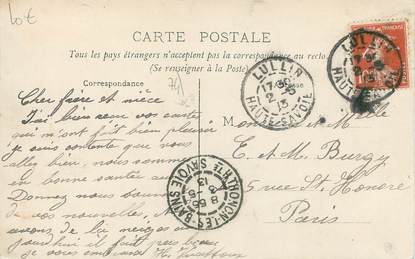 lot
CARTE POSTALE
Tous les pays étrangers n'acceptent pas la correspondance au recto
(Se renseigner à la Poste)
Correspondance
Cher frère et nièce
J'ai bien reçu vos cartes
qui m'ont fait bien plaisir
je suis contente que vous
allez bien, nous sommes
en bonne santé au
Donnez nous
de vos nouvelles,
avons de la neige
il fait
je vous
LULLIN
17 30
2
13
HAUTE-SAVOIE
LULLIN
17 30
2
13
HAUTE-SAVOIE
THONON-LES-BAINS
8 55
3
13
HTE SAVOIE
M
et Melle
E. et M. Burgy
rue St. Honoré
Paris